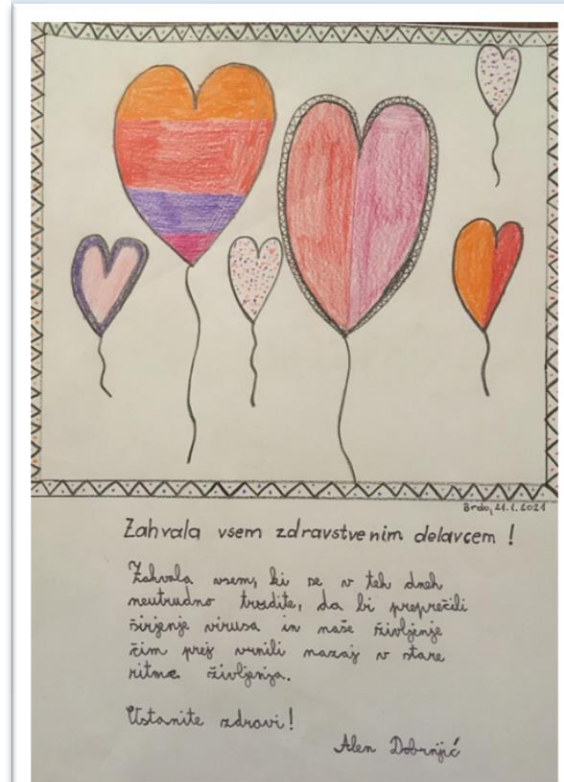 Brdo, 21.1.2021
Zahvala vsem zdravstvenim delavcem !
Zahvala vsem, ki se v teh dneh
neutrudno trudite, da bi preprečili
širjenje virusa in naše življenje
čim prej vrnili nazaj v stare
ritme življenja.
Ostanite zdravi!
Alen Dobrnjić